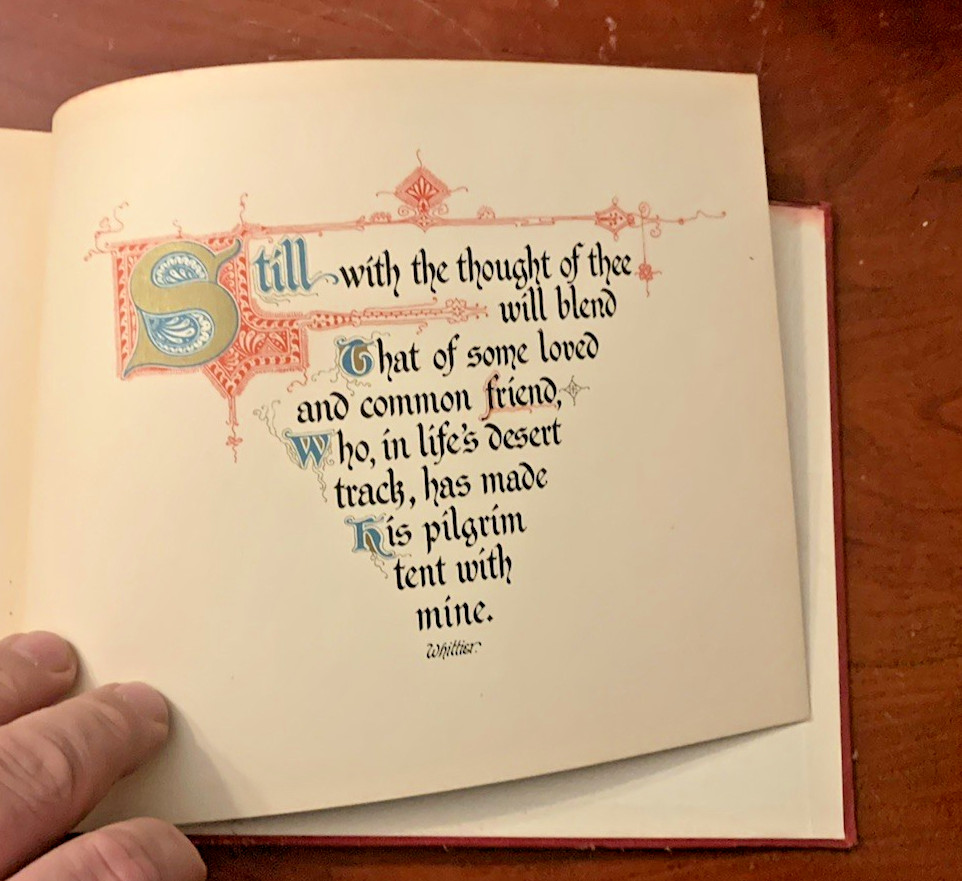 Still with the thought of thee
will blend
That of some loved
and common friend,
Who, in life's desert
track, has made
His pilgrim
tent with
mine.
Whittier.